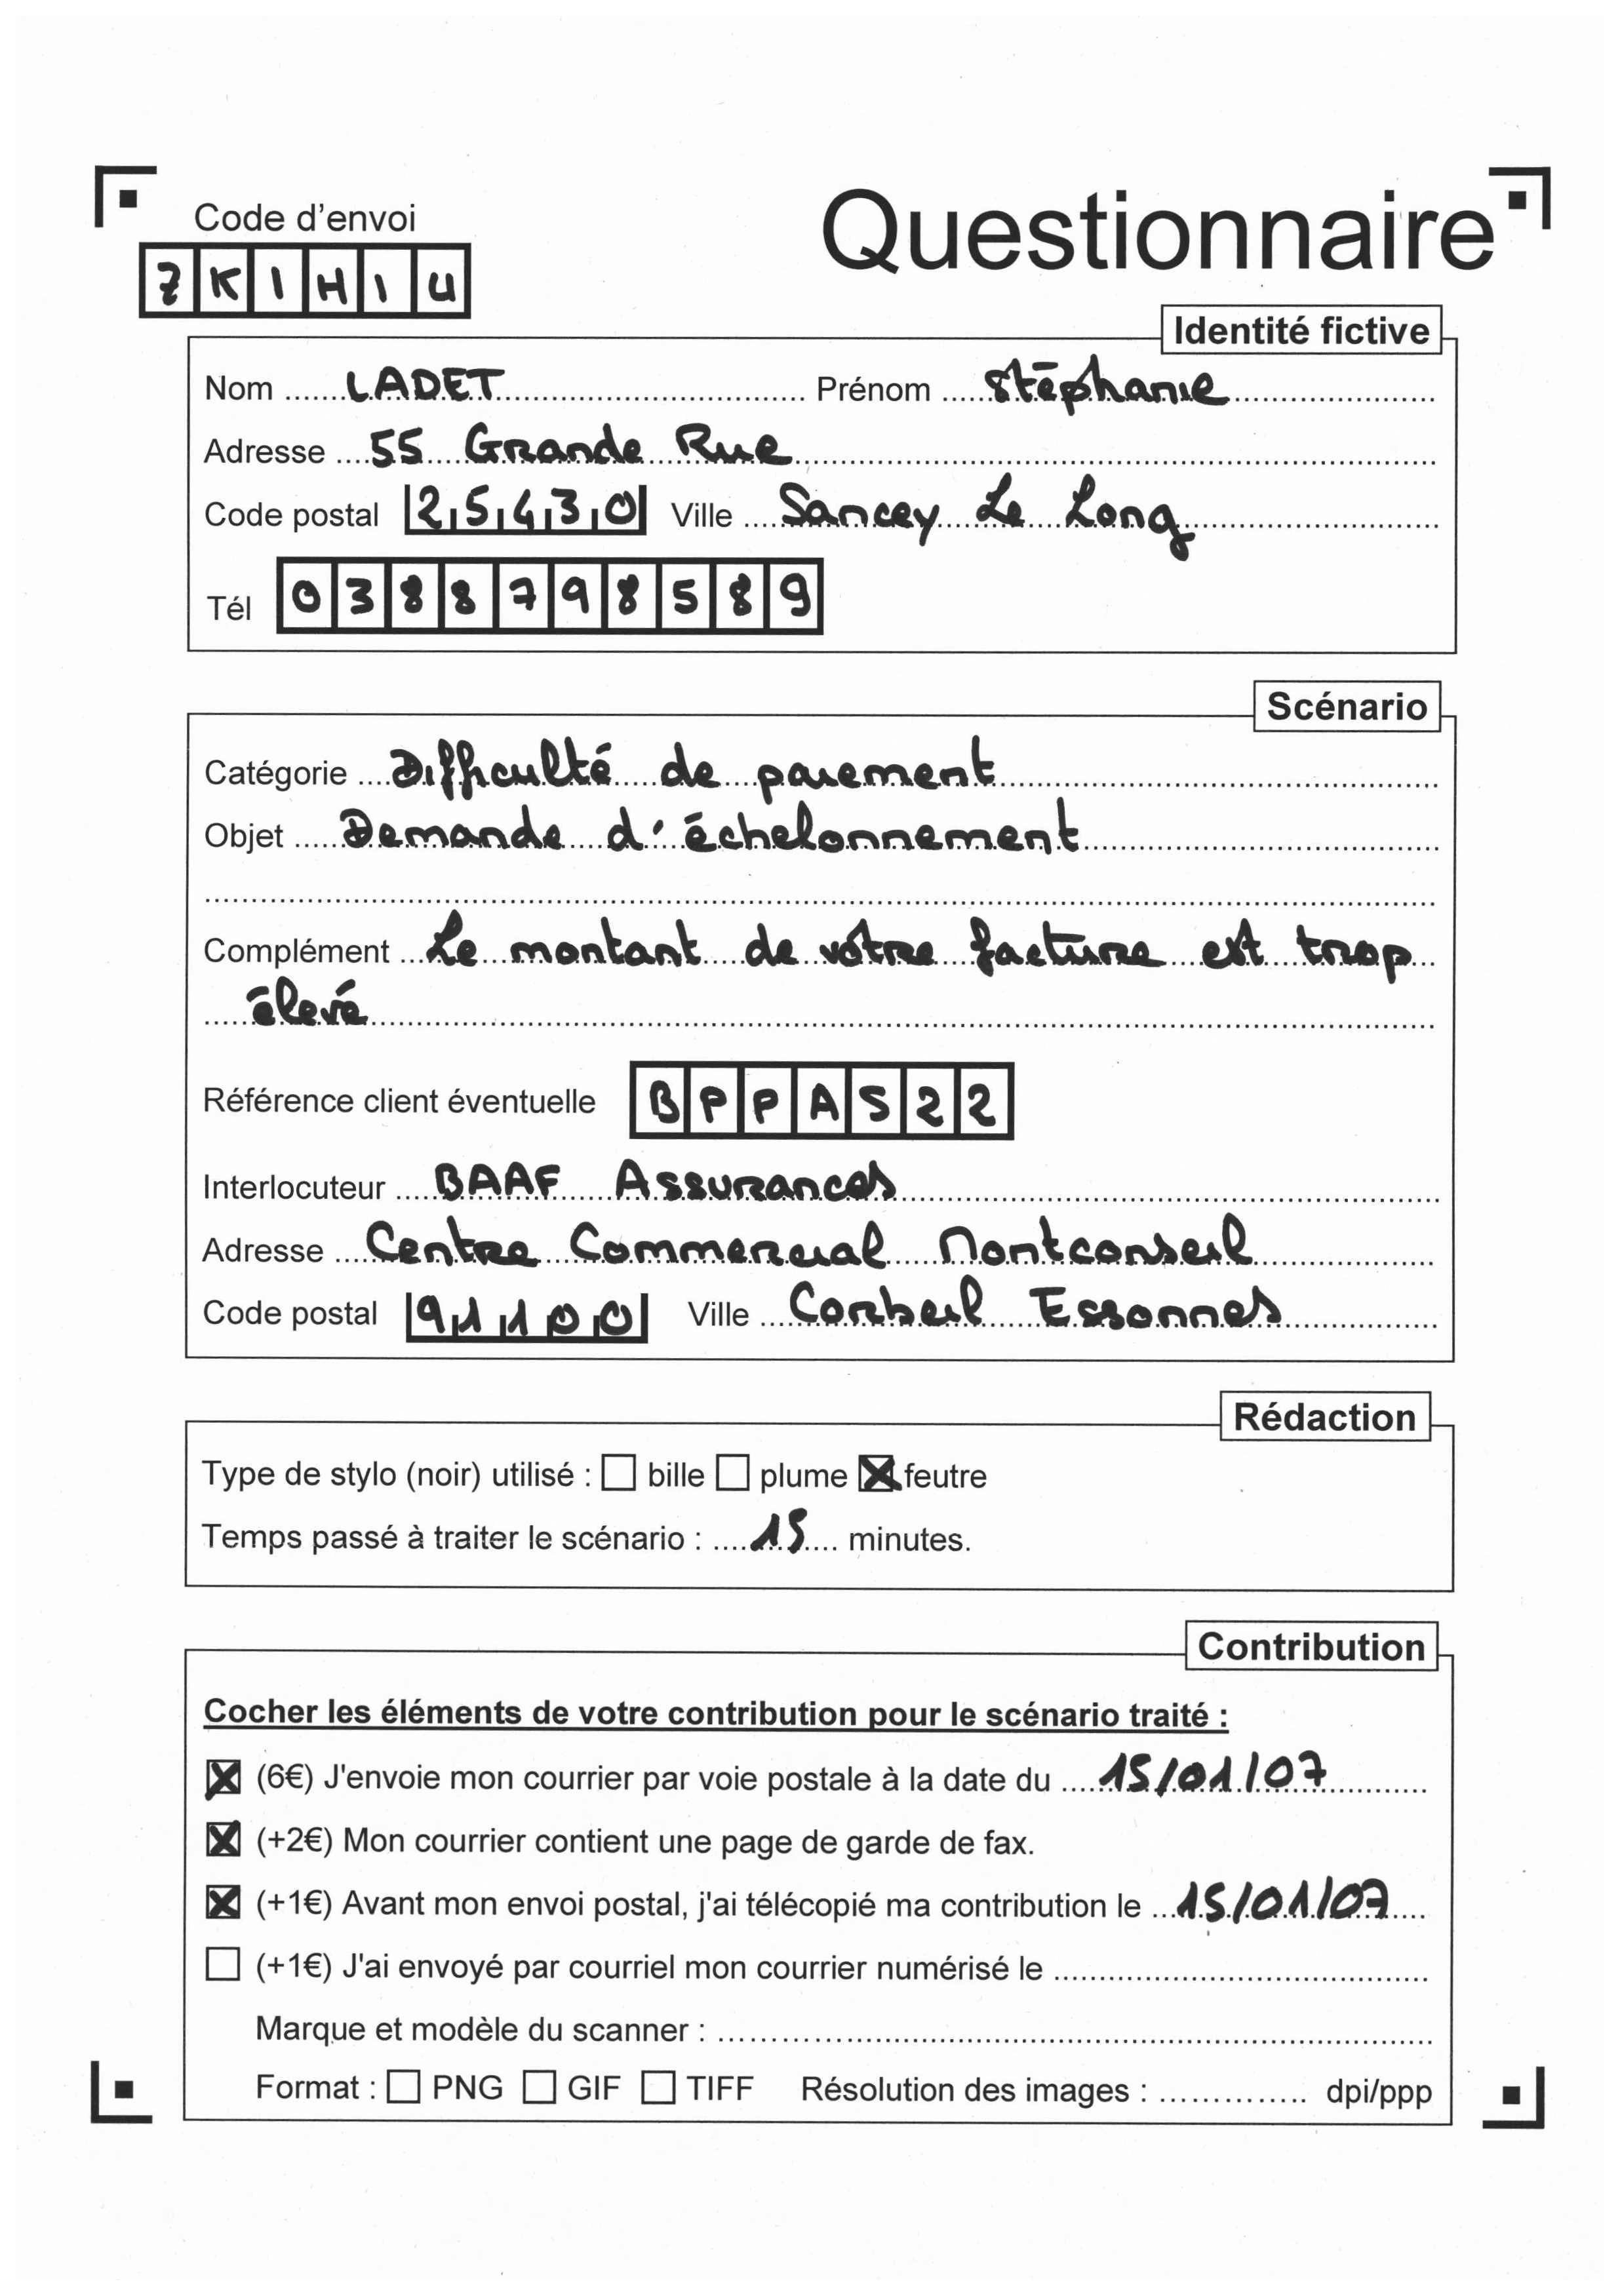 Code d'envoi
Questionnaire
7KIHIU
Identité fictive
Nom LADET Prénom Stéphanie
Adresse 55 Grande Rue
Code postal 25430 Ville Sancey Le Long
Tél 0388798589
Scénario
Catégorie Difficulté de paiement
Objet Demande d'échelonnement
Complément Le montant de votre facture est trop
élevé
Référence client éventuelle BPPAS22
Interlocuteur BAAF Assurances
Adresse Centre Commercial Montconseil
Code postal 91100 Ville Corbeil Essonnes
Rédaction
Type de stylo (noir) utilisé : ☐ bille ☐ plume ☒ feutre
Temps passé à traiter le scénario : 15 minutes.
Contribution
Cocher les éléments de votre contribution pour le scénario traité :
☒ (6€) J'envoie mon courrier par voie postale à la date du 15/01/07
☒ (+2€) Mon courrier contient une page de garde de fax.
☒ (+1€) Avant mon envoi postal, j'ai télécopié ma contribution le 15/01/07
☐ (+1€) J'ai envoyé par courriel mon courrier numérisé le
Marque et modèle du scanner :
Format : ☐ PNG ☐ GIF ☐ TIFF Résolution des images : dpi/ppp